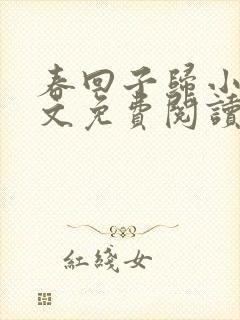 春回子歸小
文免費閱讀
紅綫女